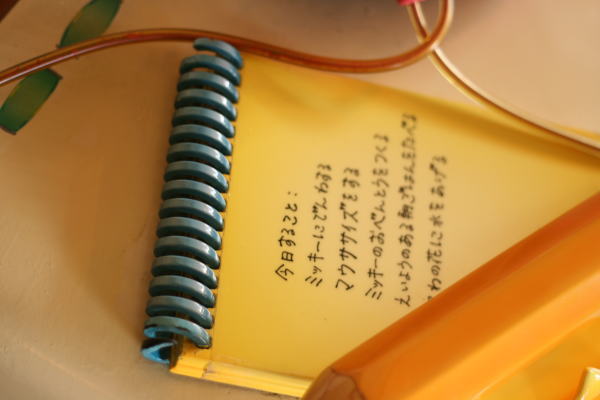 今日すること:
ミッキーにでんわする
マウササイズをする
ミッキーのおべんとうをつくる
えいようのある朝ごはんをたべる
わの花に水をあげる